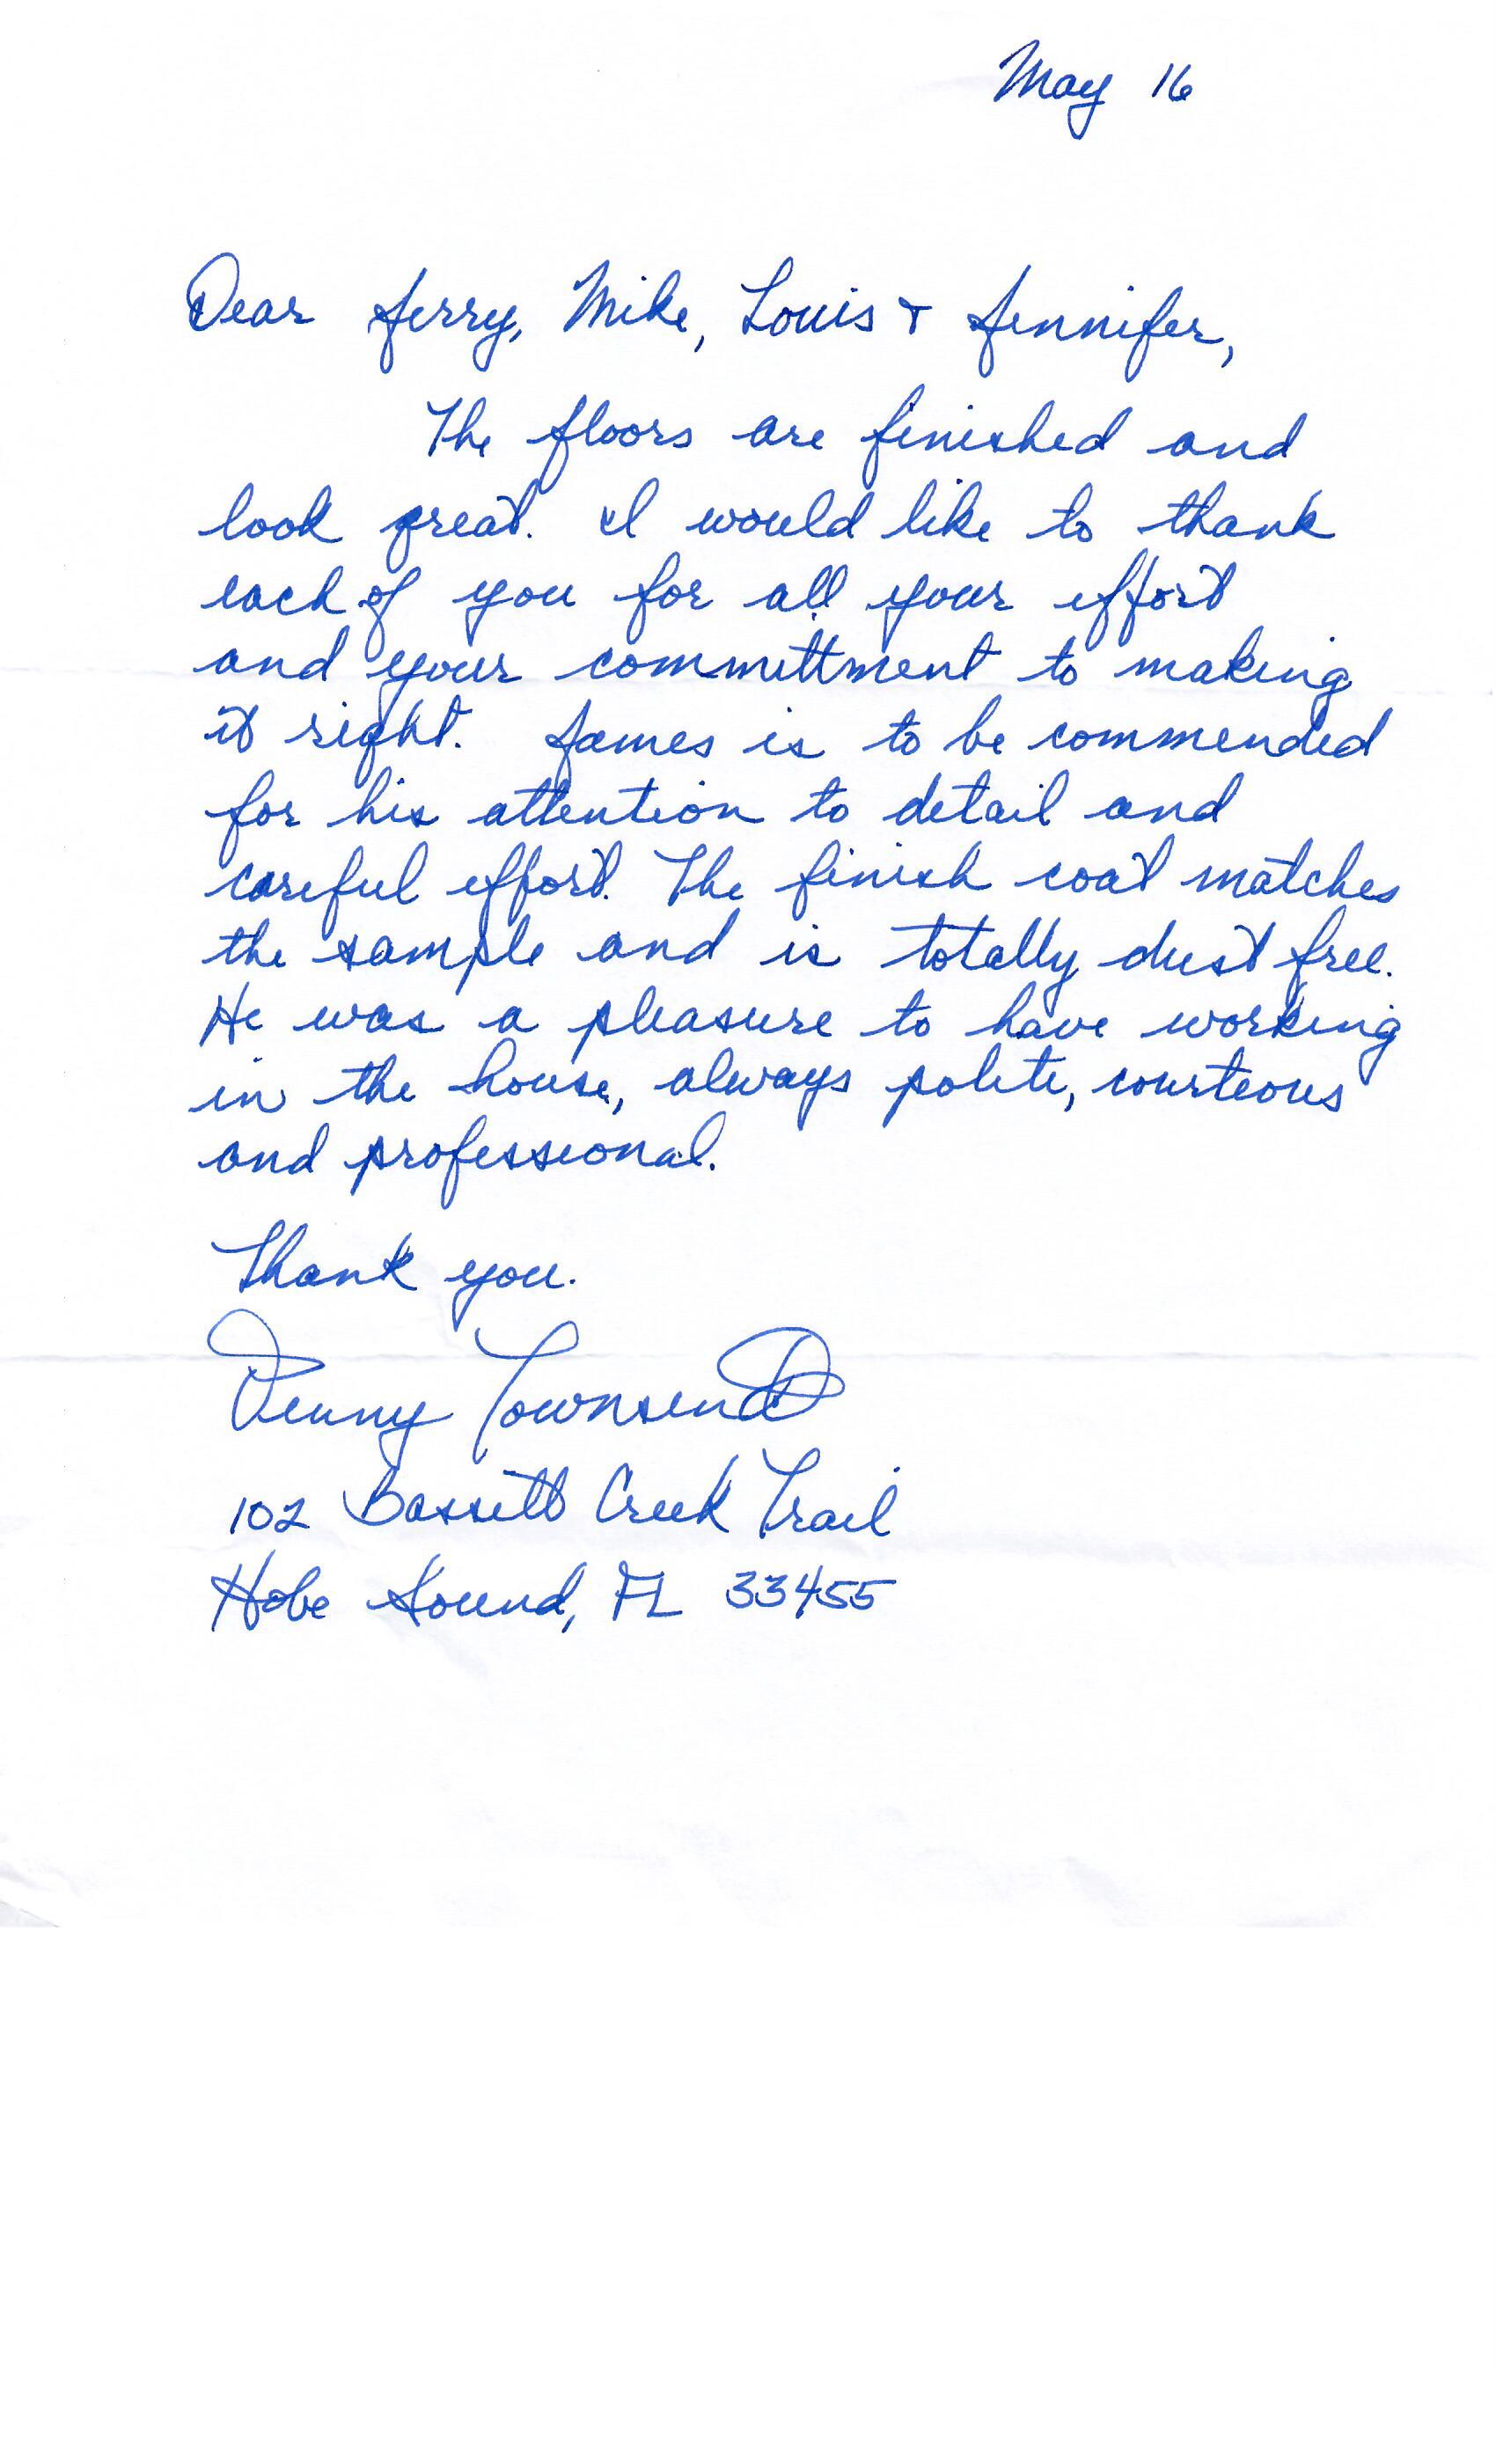 May 16
Dear Jerry, Mike, Louis & Jennifer,
The floors are finished and
look great. I would like to thank
each of you for all your effort
and your committment to making
it right. James is to be commended
for his attention to detail and
careful effort. The finish coat matches
the sample and is totally dust free.
He was a pleasure to have working
in the house, always polite, courteous
and professional.
Thank you.
Penny Townsend
102 Bassett Creek Trail
Hobe Sound, FL 33455